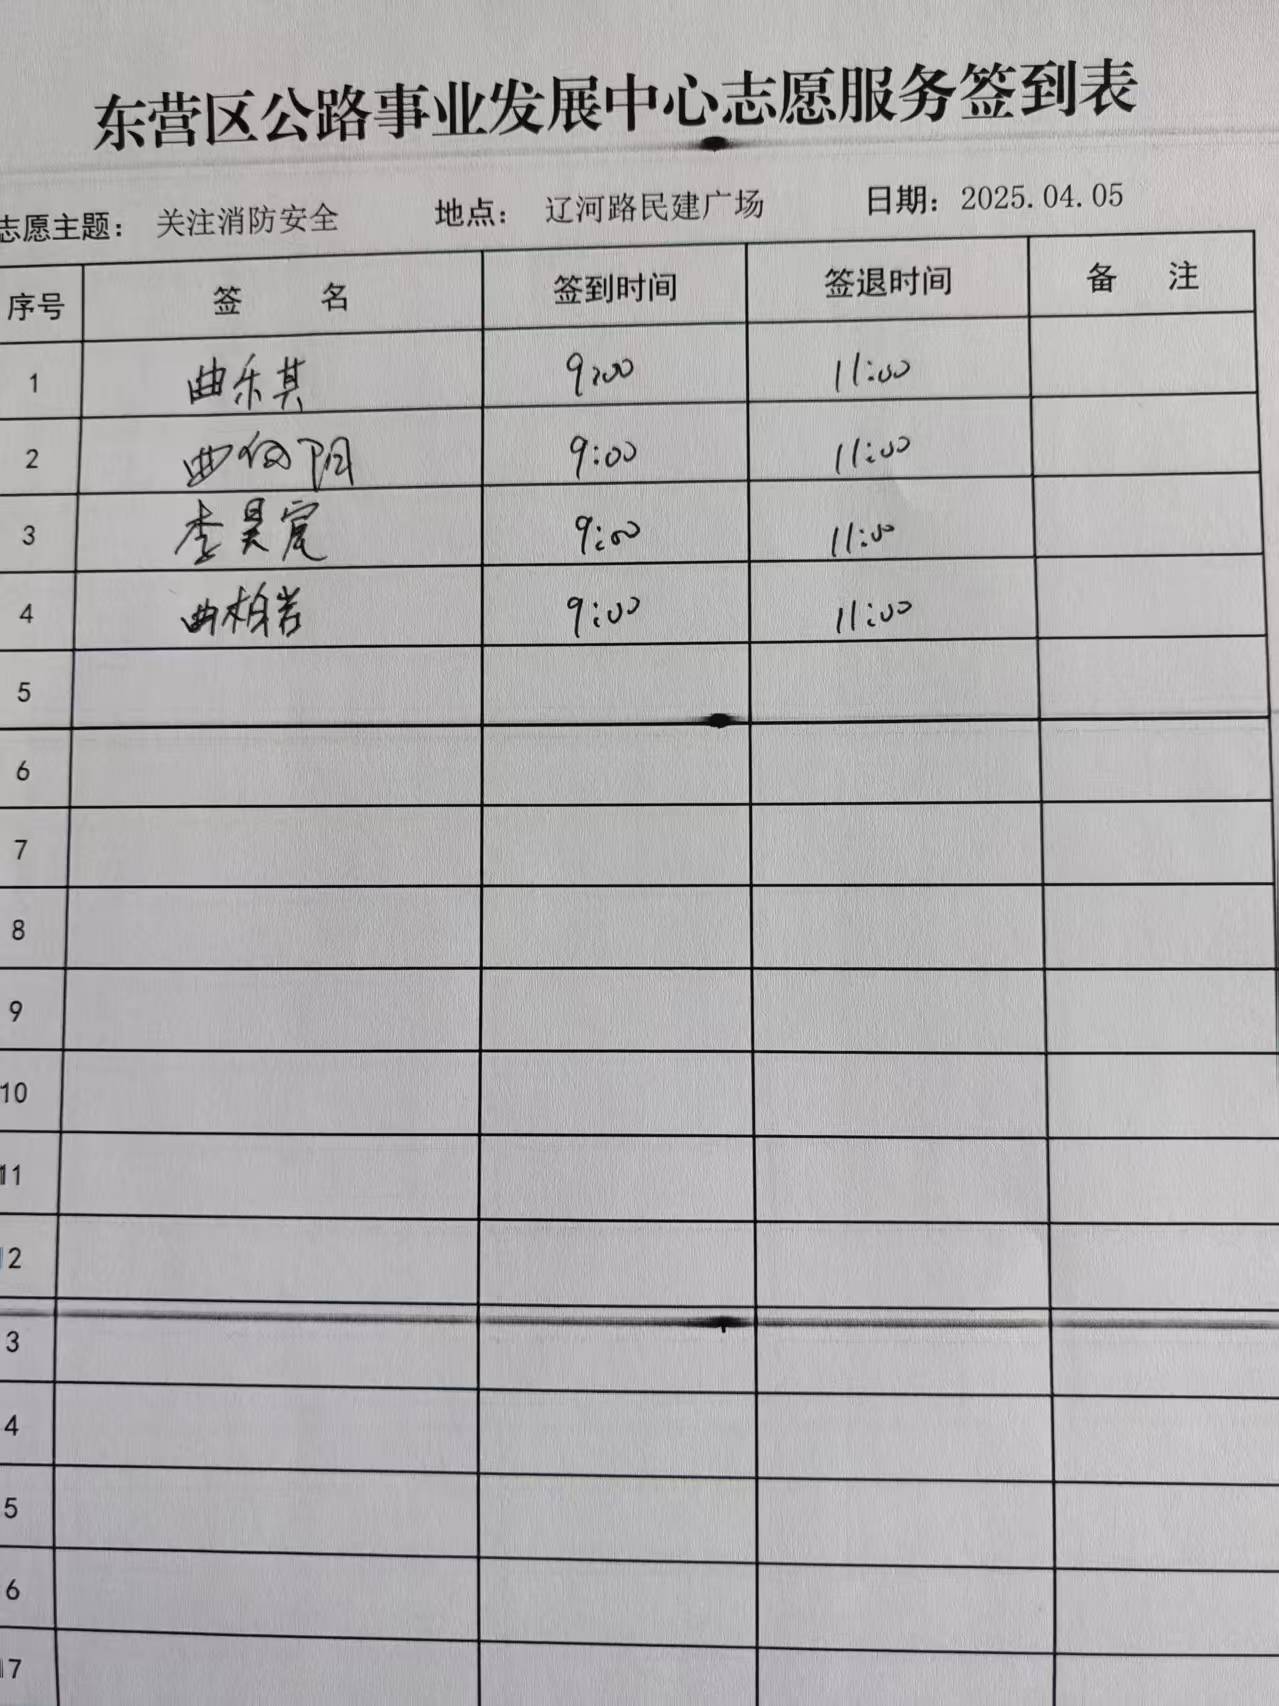 东营区公路事业发展中心志愿服务签到表
志愿主题： 关注消防安全 地点： 辽河路民建广场 日期：2025.04.05
序号 签 名 签到时间 签退时间 备 注
1 曲乐其 9:00 11:00
2 曲向阳 9:00 11:00
3 李昊宸 9:00 11:00
4 曲柏岩 9:00 11:00
5
6
7
8
9
10
11
12
3
4
5
6
17